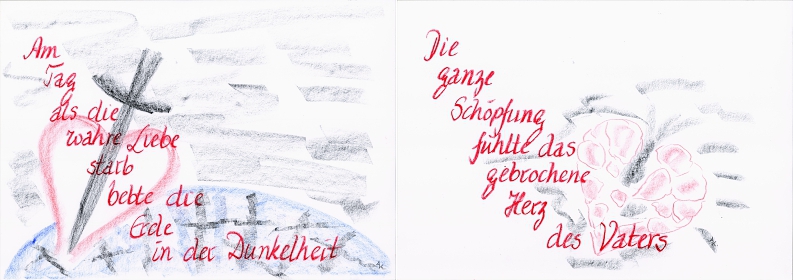 Am
Tag
als die
wahre Liebe
starb
bebte die
Erde
in der Dunkelheit
Die
ganze
Schöpfung
fühlte das
gebrochene
Herz
des Vaters